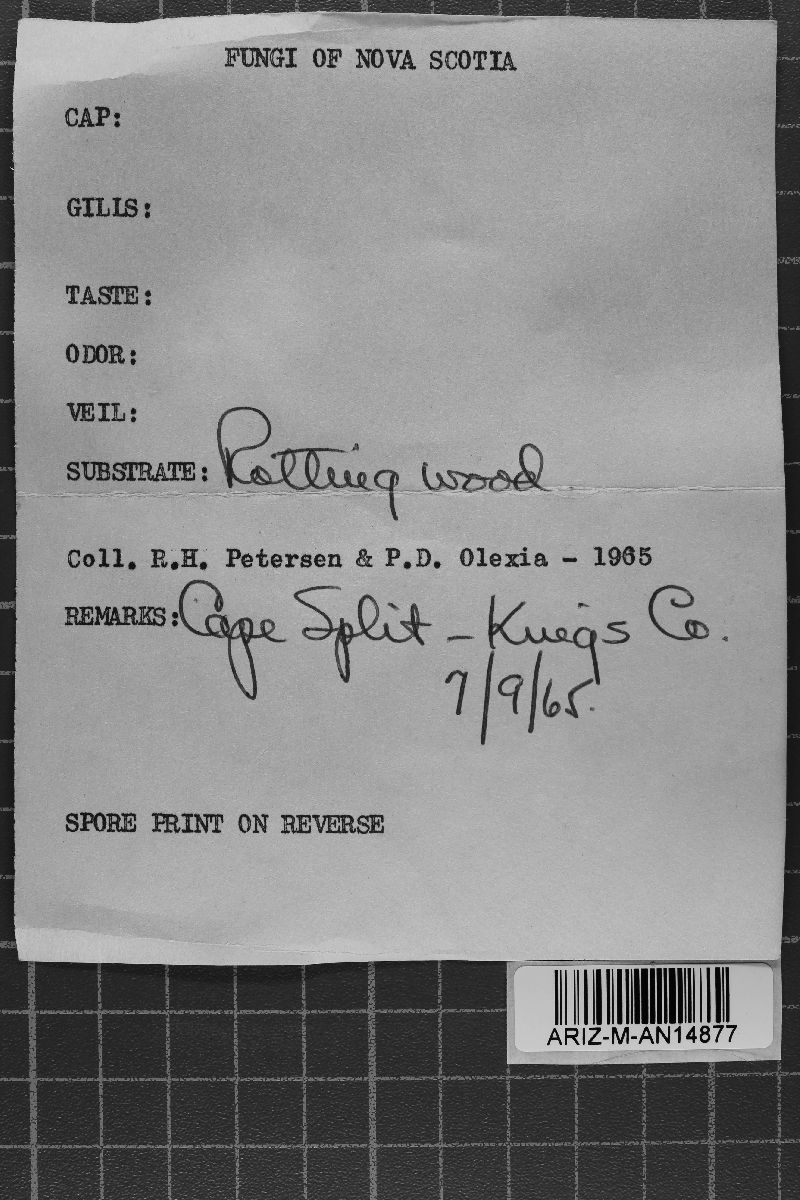 FUNGI OF NOVA SCOTIA
CAP:
GILLS:
TASTE:
ODOR:
VEIL:
SUBSTRATE: Rotting wood
Coll. R.H. Petersen & P.D. Olexia - 1965
REMARKS: Cape Split - Kings Co.
7/9/65.
SPORE PRINT ON REVERSE
ARIZ-M-AN14877